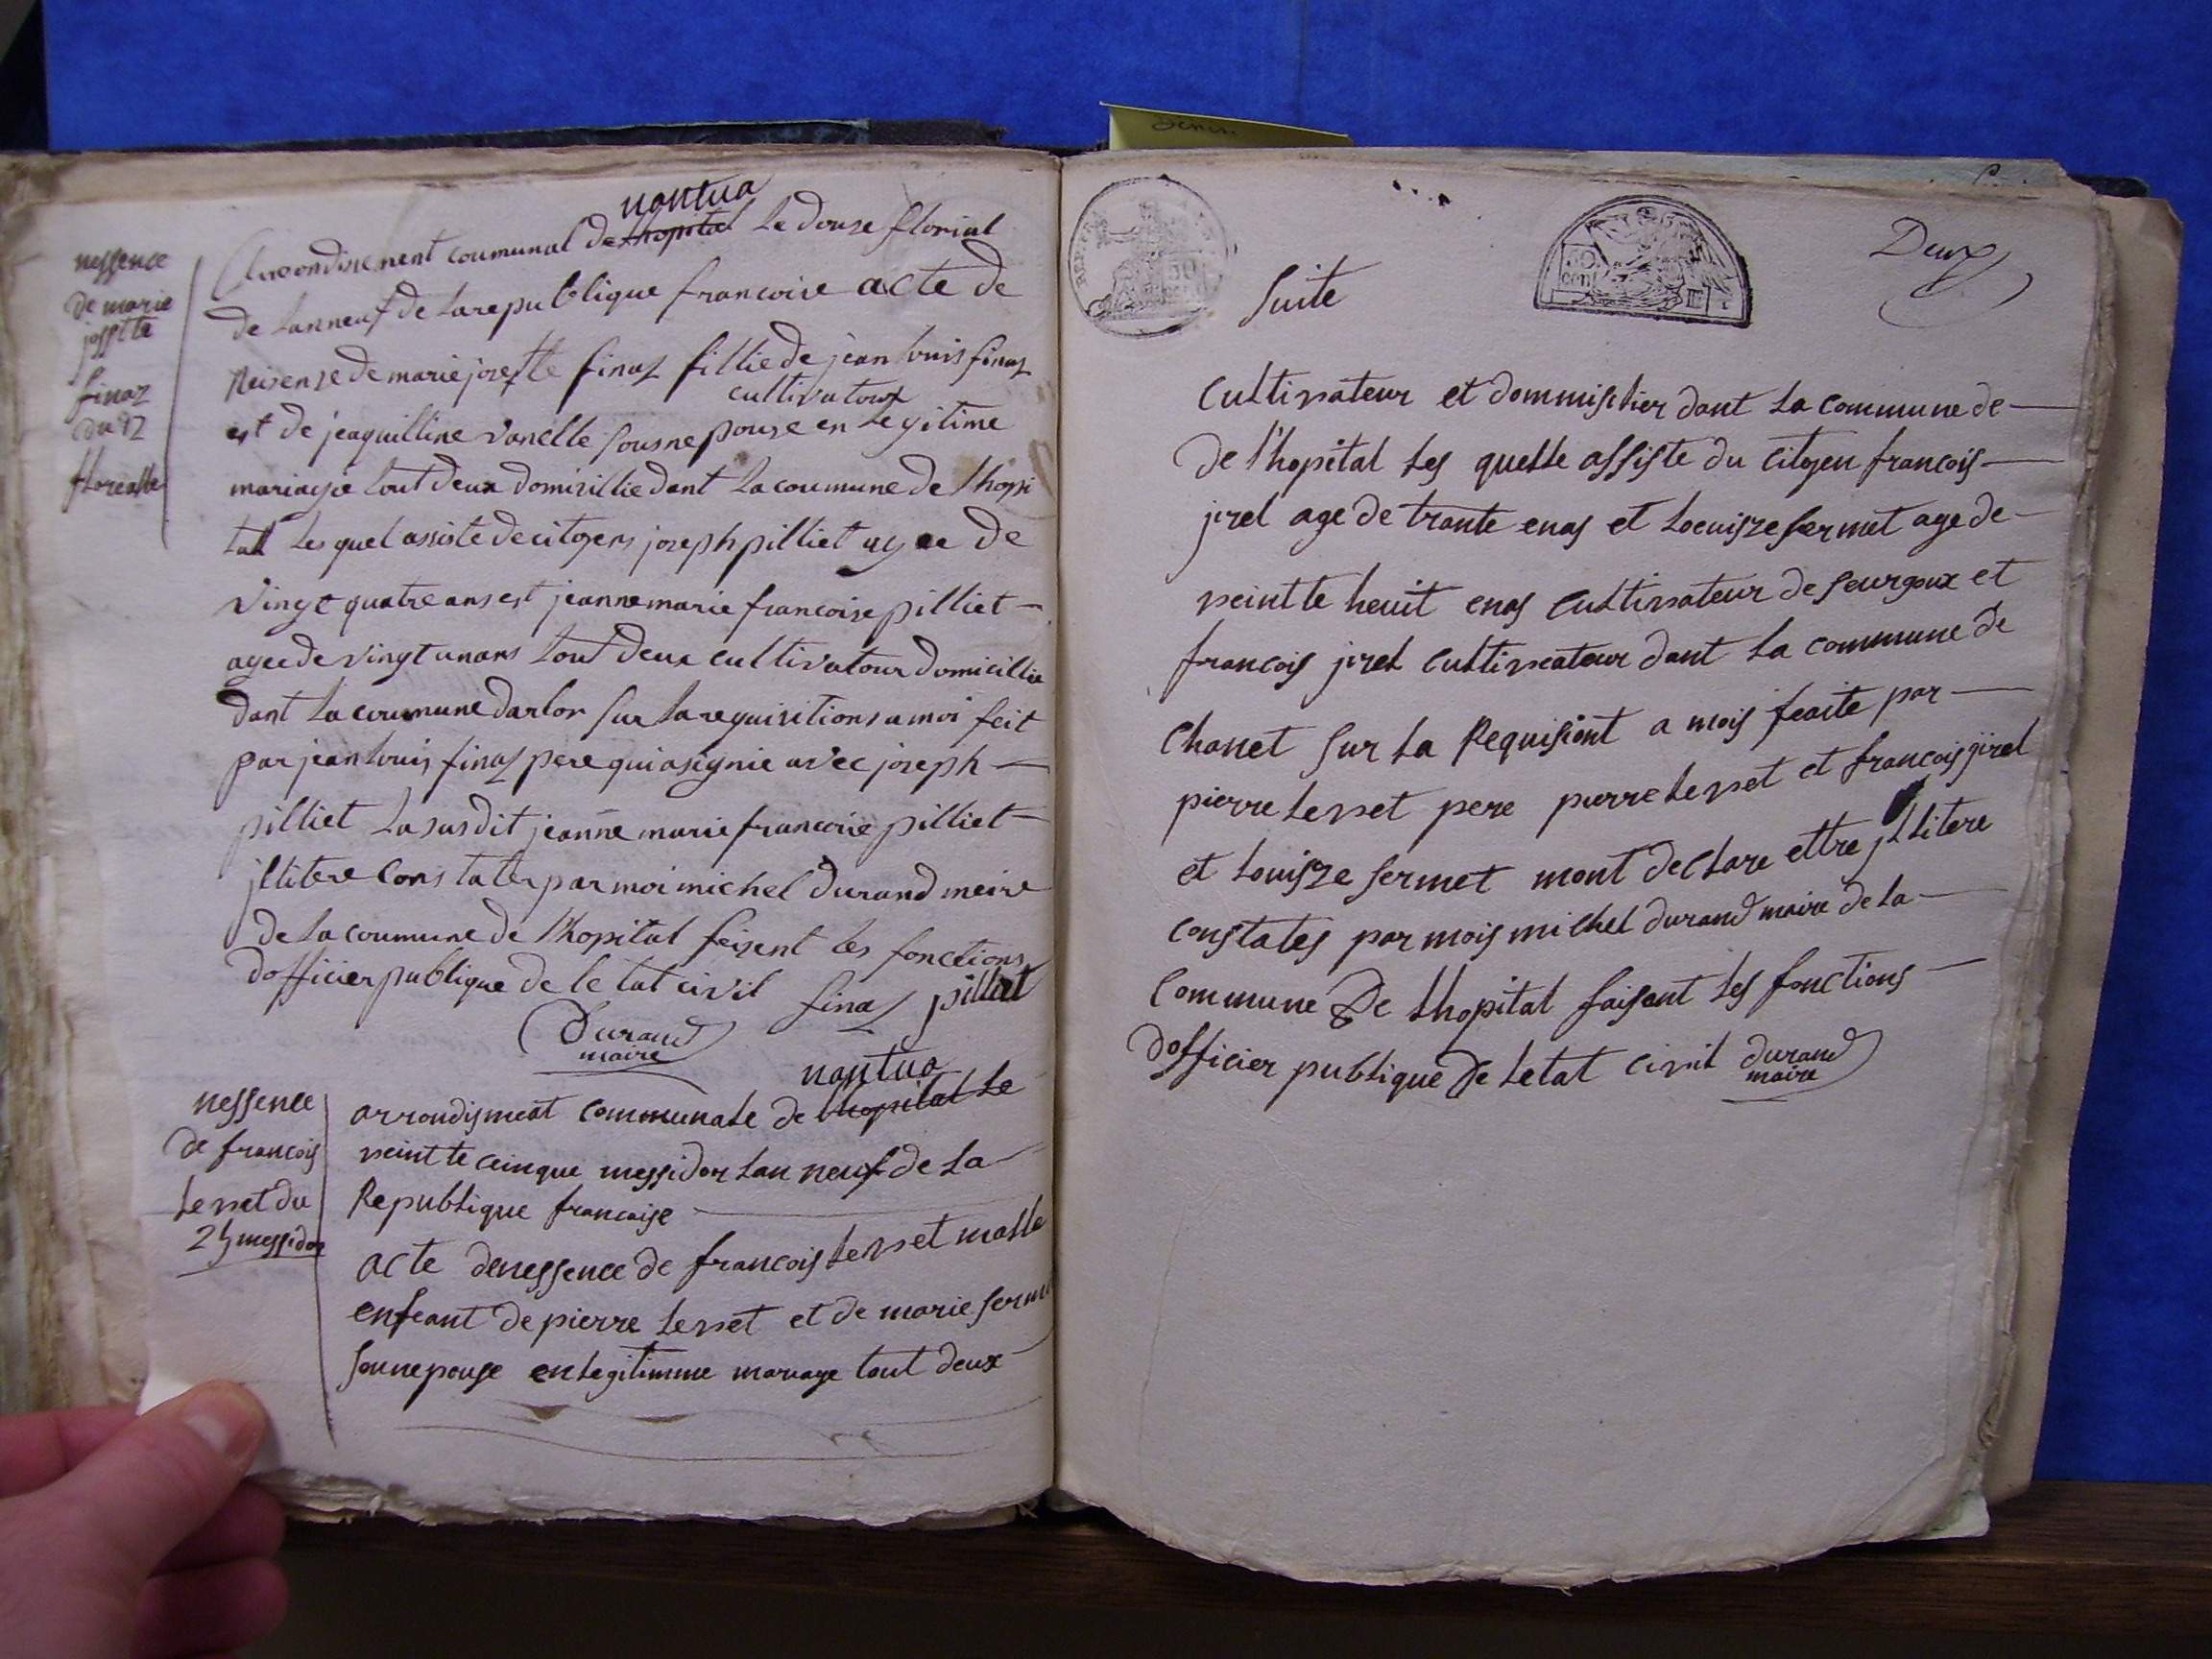 nessence
de marie
joseftte
finaz
du 12
floréalle
nantua
Arrondisement coumunal de lhopital le douse florial
de lanneuf de la republique francoise acte de
Neisense de marie josefte finaz fillie de jean louis finaz
cultivatour
est de jeaquilline vanelle sousnepouse en legitime
mariage tout deux domicillie dant la coumune de lhopi
tall lesquel assiste de citoyens joseph pilliet agee de
vingt quatre ans est jeanne marie francoise pilliet
agee de vingt un ans tout deux cultivatour domicillie
dant la coumune darlor sur la requisitions a moi feit
par jean louis finaz pere qui a signie avec joseph
pilliet la susdit jeanne marie francoise pilliet
jllitere Constater par moi michel durand meire
de la coumune de lhopital feisent les fonctions
dofficier publique de le tat civil finaz pilliet
Durand
maire
nessence
de francois
levvet du
25 messidor
nantua
arrondisment communale de lhopital le
veintte ceinque messidor lan neuf de la
Republique francaise
acte denessence de francois levvet malle
enfeant de pierre levvet et de marie
sounepouse en legitimme mariage tout deux
REP. FRA.
50
50
cent
Deux
Suite
Cultivateur et dommislier dant la commune de
de l'hopital les quelle assiste du citoyen francois
jirel age de trante enas et loeuisze sermet age de
veintte heuit enas cultivateur de seurgoux et
francois jirel cultiveateur dant la commune de
Chanet sur la Requisiont a mois feaite par
pierre levvet pere pierre levvet et francois jirel
et louisze sermet mont declare ettre jllitere
constates par mois michel durand maire de la
Commune De lhopital faisant les fonctions
dofficier publique De letat civil durand
maire